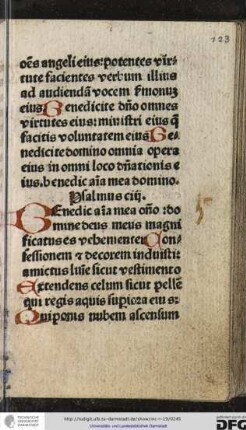 123
oẽs angeli eius: potentes vir-
tute facientes verbum illius
ad audiendã vocem ẜmonuz
eius Benedicite dño omnes
virtutes eius: ministri eius q̃
facitis voluntatem eius Be-
nedicite domino omnia opera
eius in omni loco dñationis e
ius. benedic aĩa mea domino.
Psalmus ciij.
BEnedic aĩa mea dño: do
mine deus meus magni
ficatus es vehementer Con-
fessionem et decorem induisti:
amictus luĩe sicut vestimento
Extendens celum sicut pellẽ
qui tegis aquis supiora eius:
Qui ponis nubem ascensum
http://tudigit.ulb.tu-darmstadt.de/show/inc-
Universitäts- und Landesbibliothek Darmstadt
DFG